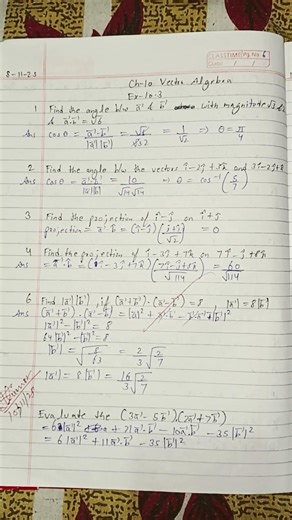 CLASSTIME Pg No. 6
8-11-23
Ch-10 Vector Algebra
Ex-10.3
1 Find the angle b/w a⃗ & b⃗ with magnitude √3 & 2
& a⃗·b⃗ = √6
Ans cosθ = a⃗·b⃗/|a⃗||b⃗| = √6/√3·2 = 1/√2 ⇒ θ = π/4
2 Find the angle b/w the vectors î-2ĵ+3k̂ and 3î-2ĵ+k̂
Ans cosθ = a⃗·b⃗/|a⃗||b⃗| = 10/√14√14 ⇒ θ = cos⁻¹(5/7)
3 Find the projection of î-ĵ on î+ĵ
projection = a⃗·b⃗ = (î-ĵ)(î+ĵ/√2) = 0
4 Find the projection of î-3ĵ+7k̂ on 7î-ĵ+8k̂
Ans = a⃗·b⃗ = (î-3ĵ+7k̂)(7î-ĵ+8k̂/√114) = 60/√114
6 Find |a⃗| |b⃗|, if (a⃗+b⃗)·(a⃗-b⃗) = 8 |a⃗| = 8|b⃗|
Ans (a⃗+b⃗)·(a⃗-b⃗) = |a⃗|²
|a⃗|²-|b⃗|² = 8
64|b⃗|²-|b⃗|² = 8
|b⃗| = √8/63 = 2/3 √2/7
|a⃗| = 8|b⃗| = 16/3 √2/7
Evaluate the (3a⃗-5b⃗)·(2a⃗+7b⃗)
= 6|a⃗|² + 21a⃗·b⃗ - 10a⃗·b⃗ - 35|b⃗|²
= 6|a⃗|² + 11a⃗·b⃗ - 35|b⃗|²